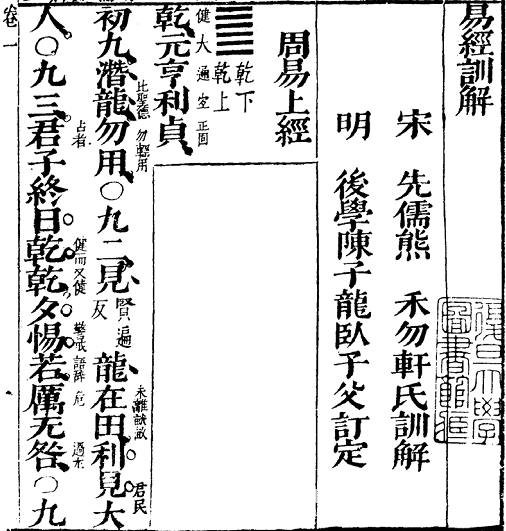 易經訓解
宋 先儒熊 禾勿軒氏訓解
明 後學陳子龍臥子父訂定
周易上經
乾下
乾上
乾元亨利貞
健 大 通 宜 正固
初九潛龍勿用○九二見龍在田利見大
比聖德 勿輕用 賢遍反 未離 君民
人○九三君子終日乾乾夕惕若厲无咎○九
占者 健而又健 警戒 語辭 危
卷一
復旦大學
圖書館